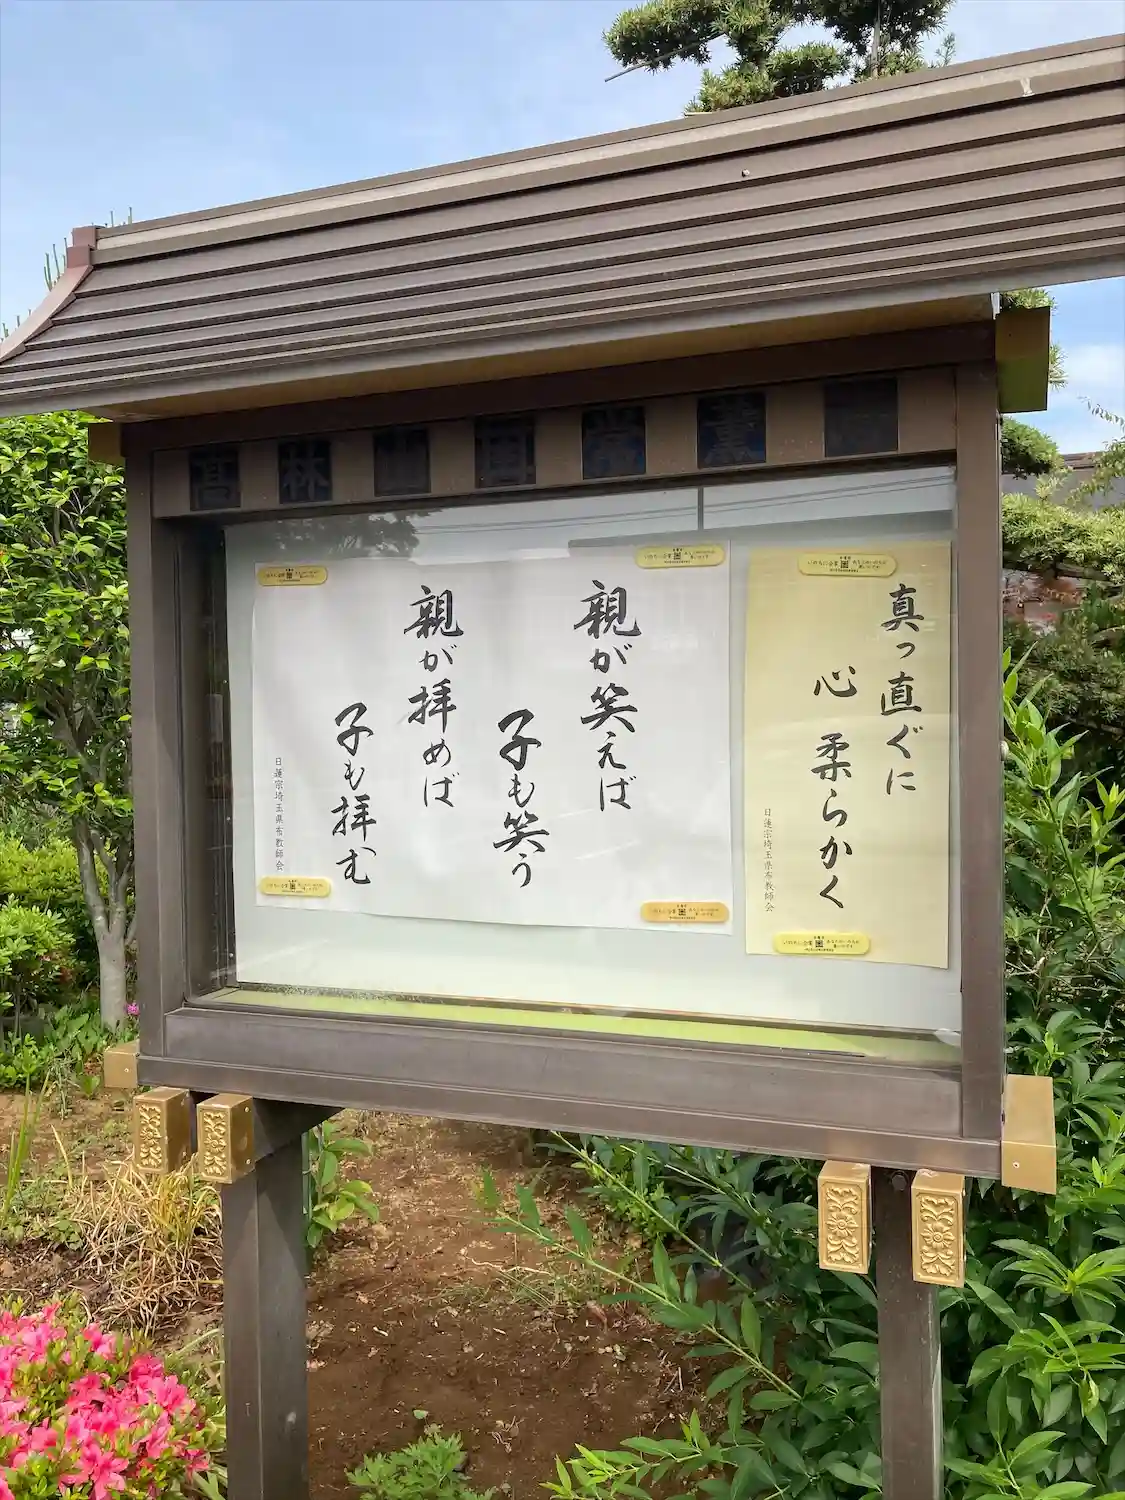 高林山國常薫
真っ直ぐに
心 柔らかく
日蓮宗埼玉県布教師会
親が笑えば
子も笑う
親が拝めば
子も拝む
日蓮宗埼玉県布教師会